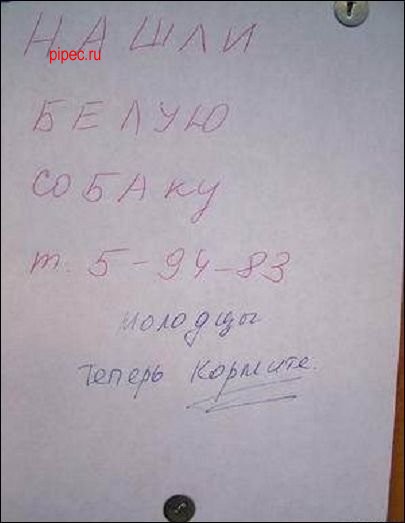 НАШЛИ
pipec.ru
БЕЛУЮ
СОБАКУ
т. 5-94-83
молодцы
теперь кормите.